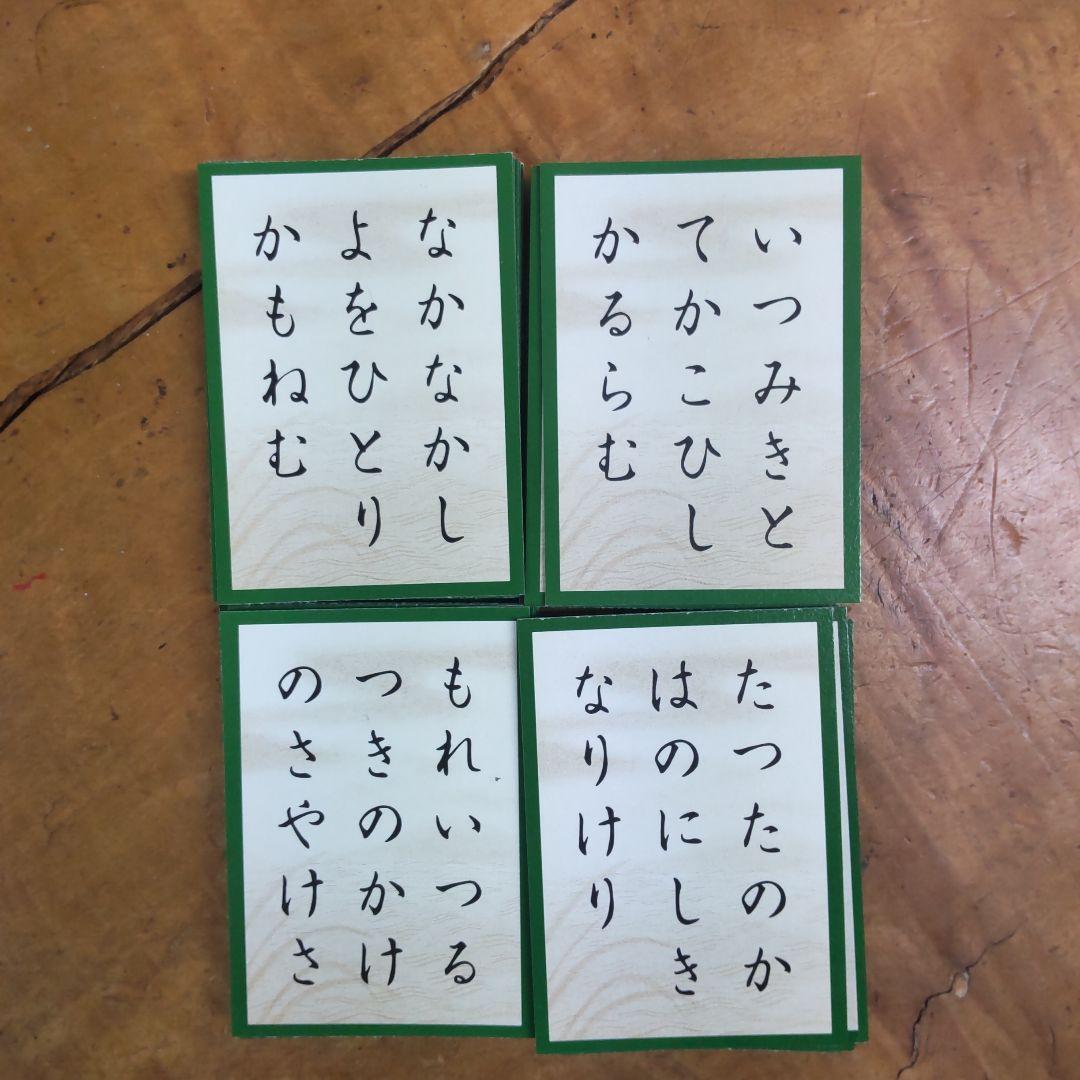 なかなかし
よをひとり
かもねむ
いつみきと
てかこひし
かるらむ
もれいつる
つきのかけ
のさやけさ
たつたのか
はのにしき
なりけり